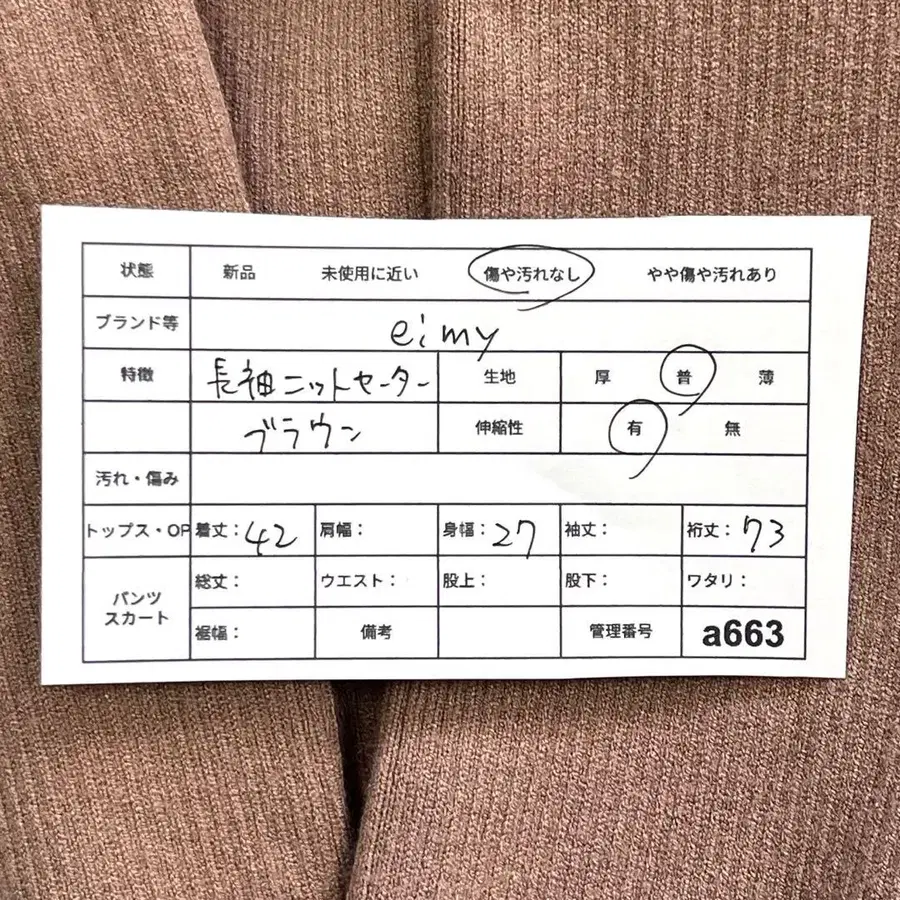 状態 新品 未使用に近い 傷や汚れなし やや傷や汚れあり
ブランド等 eimy
特徴 長袖ニットセーター 生地 厚 普 薄
ブラウン 伸縮性 有 無
汚れ・傷み
トップス・OP 着丈：42 肩幅： 身幅：27 袖丈： 裄丈：73
パンツ スカート 総丈： ウエスト： 股上： 股下： ワタリ：
裾幅： 備考 管理番号 a663